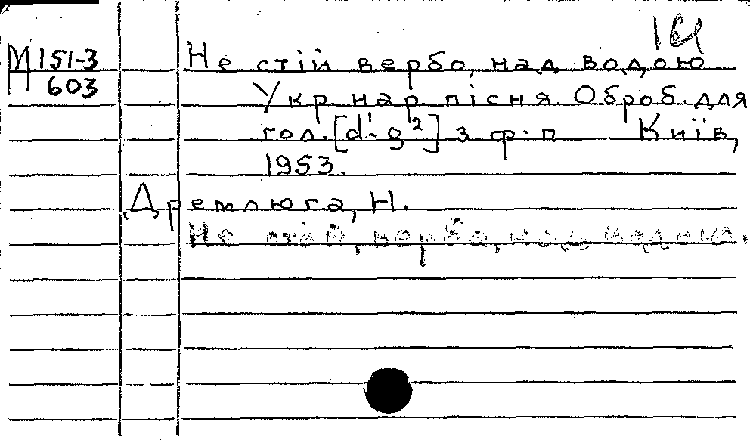 М 151-3
603
Не стій вербо, над водою
Укр. нар. пісня. Оброб. для
гол. [d¹-g²] з ф-п Київ,
1953.
Дремлюга, Н.
Не стій, верба, над водою.